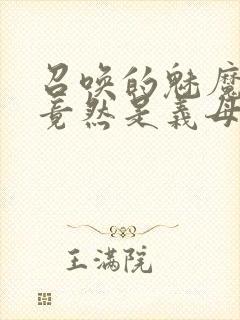 召唤的魅魔
竟然是义母
王满院